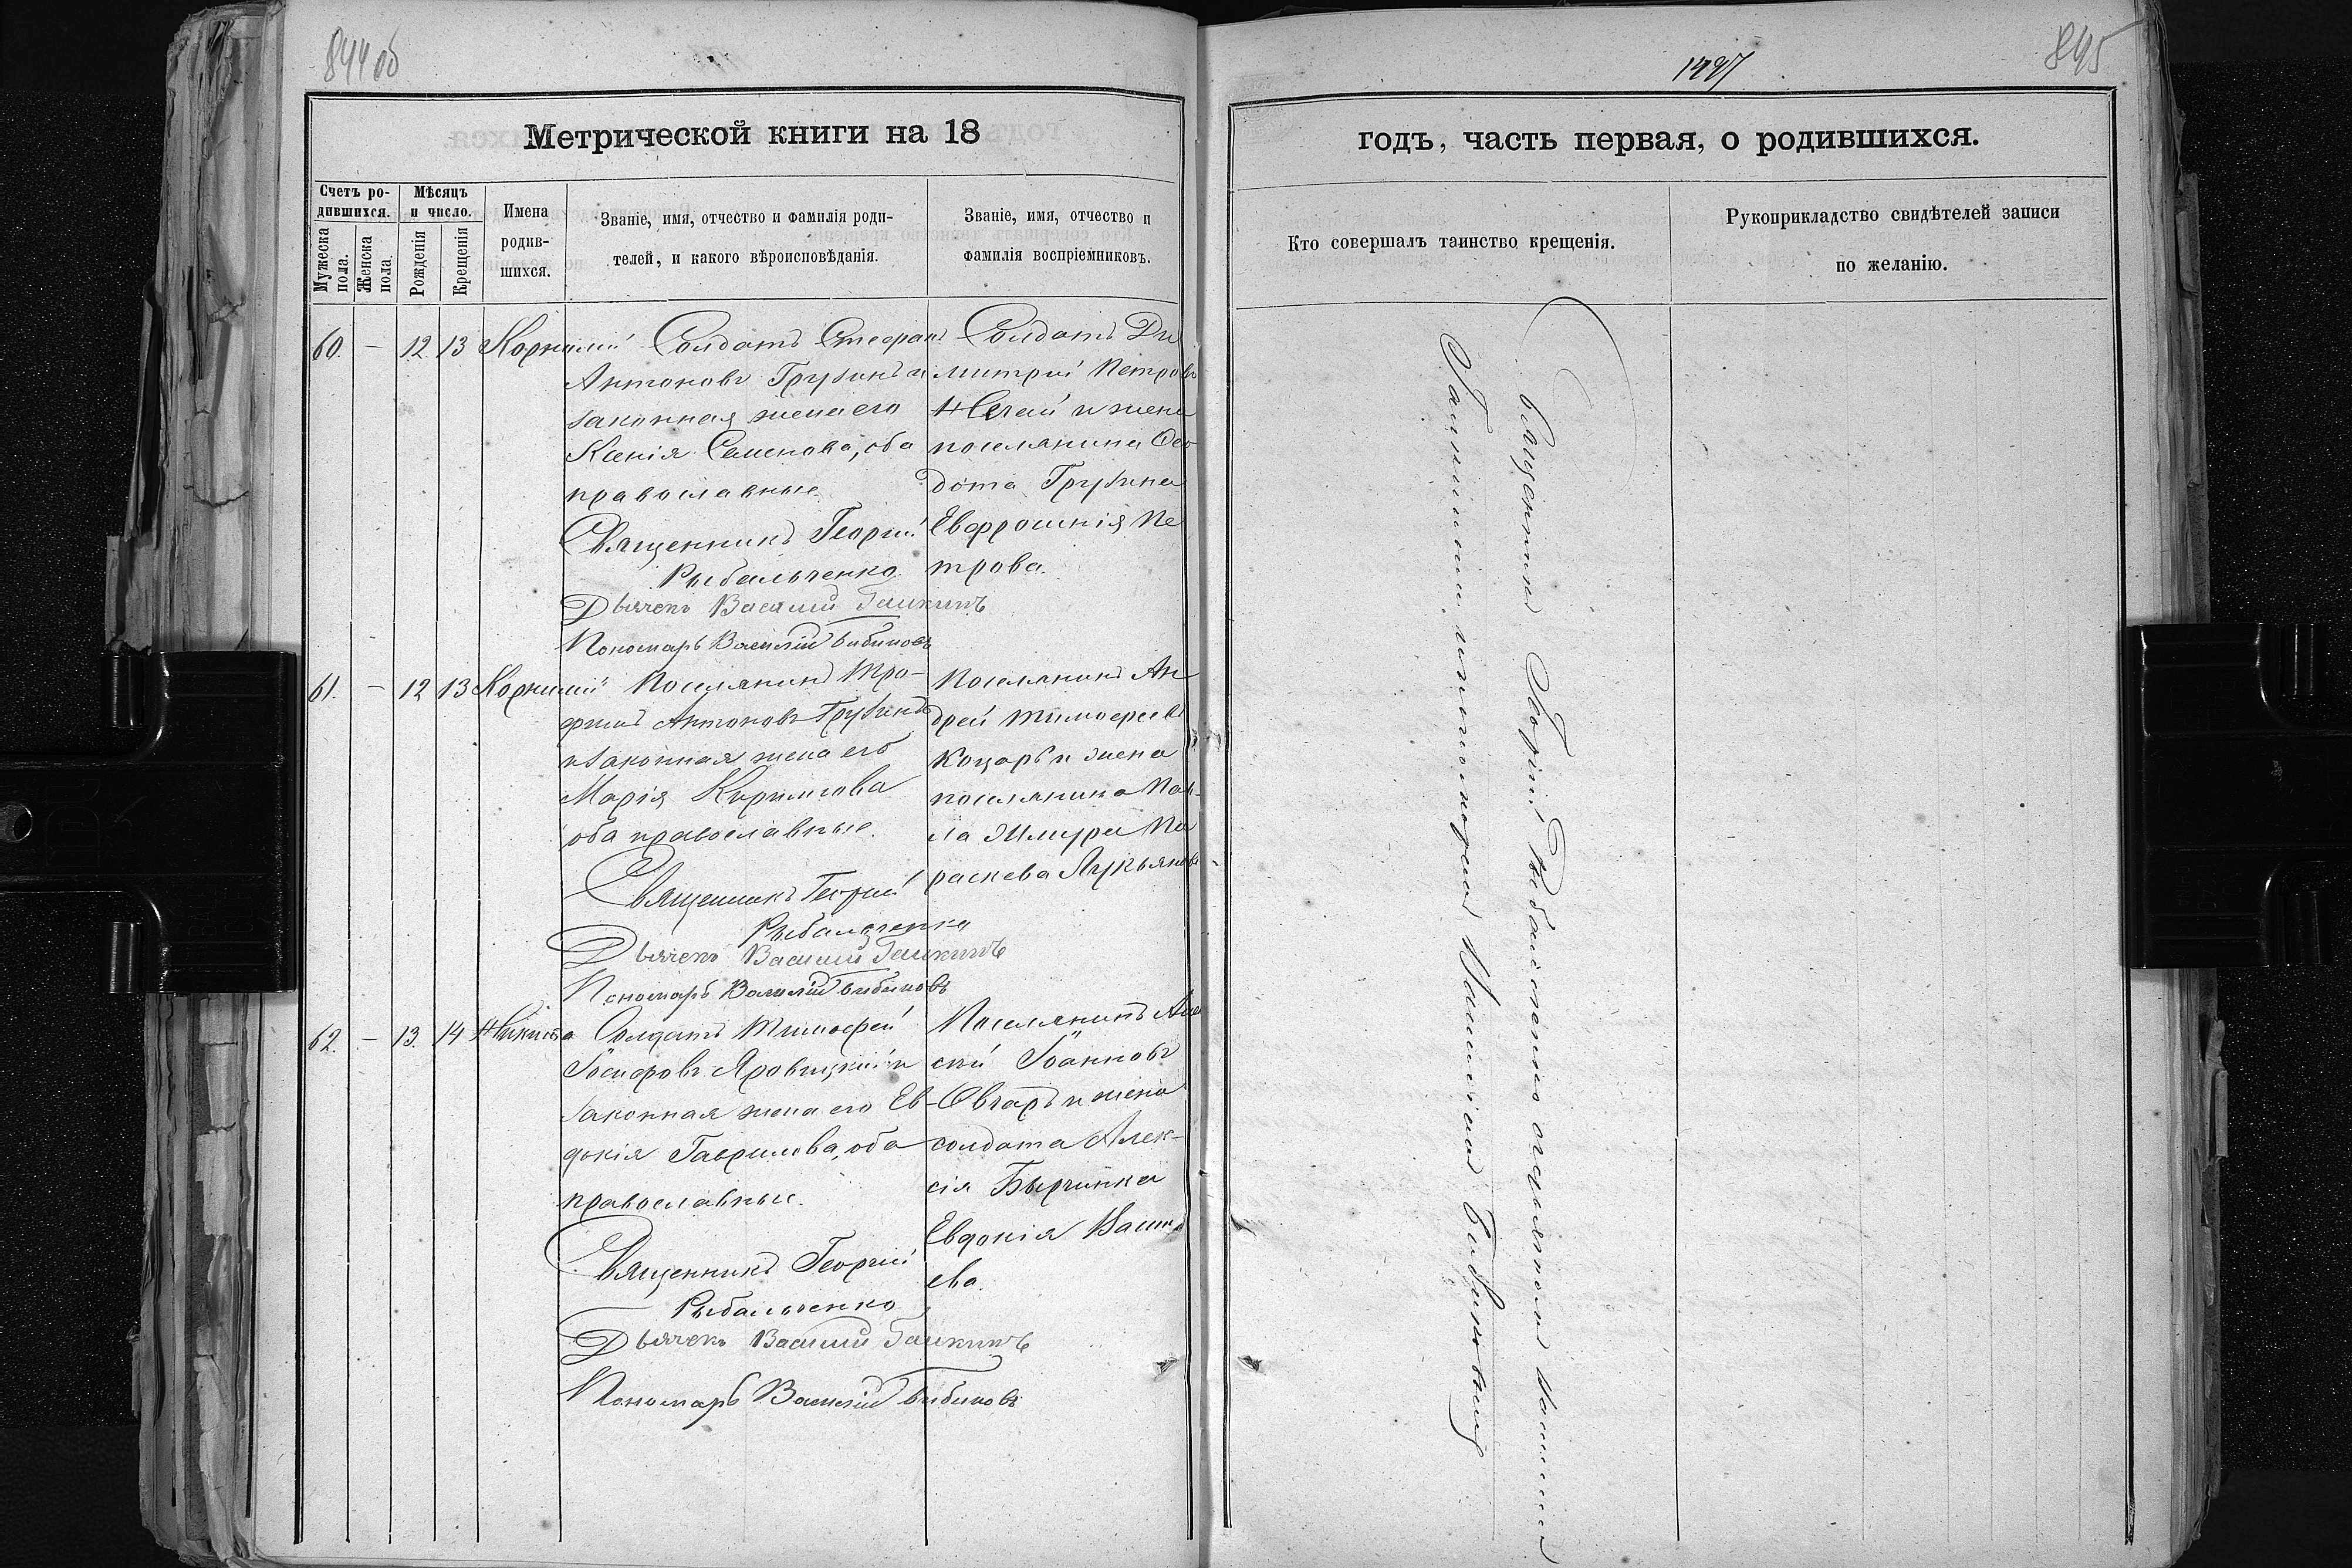 844 об
Метрической книги на 18
Счетъ ро-
дившихся.
Мужеска пола.
Женска пола.
Мѣсяцъ
и число.
Рожденія
Крещенія
Имена
родив-
шихся.
Званіе, имя, отчество и фамилія роди-
телей, и какого вѣроисповѣданія.
Званіе, имя, отчество и
фамилія воспріемниковъ.
60. – 12 13 Корнилій
Солдатъ Стефанъ
Антоновъ Грузинъ и
законная жена его
Ксенія Семенова, оба
православные.
Священникъ Георгій
Рыбальченко
Дьячекъ Василій Галкинъ
Пономарь Василій Бибиковъ
Солдатъ Ди
митрій Петровъ
Нечай и жена
поселянина Фео
дота Грузина
Евфросинія Пе
трова.
61. – 12 13 Корнилій
Поселянинъ Тро-
фимъ Антоновъ Грузинъ
и законная жена его
Марія Кирилова
оба православные.
Священникъ Георгій
Рыбальченко
Дьячекъ Василій Галкинъ
Пономарь Василій Бибиковъ
Поселянинъ Ан
дрей Тимофеевъ
Коцарь и жена
поселянина Пав-
ла Жмура Па
раскева Лукьянова
62. – 13. 14 Никита
Солдатъ Тимофей
Іосифовъ Яровицкій и
законная жена его Ев-
докія Гаврилова, оба
православные.
Священникъ Георгій
Рыбальченко
Дьячекъ Василій Галкинъ
Пономарь Василій Бибиковъ
Поселянинъ Але
сѣй Іоанновъ
Овчарь и жена
солдата Алек-
сія Бырчинка
Евдокія Васил
ева.
1497
845
годъ, часть первая, о родившихся.
Кто совершалъ таинство крещенія.
Рукоприкладство свидѣтелей записи
по желанію.
Священникъ Георгій Рыбальченко съ дьячкомъ Василіемъ
Галкинымъ и пономаремъ Василіемъ Бибиковымъ